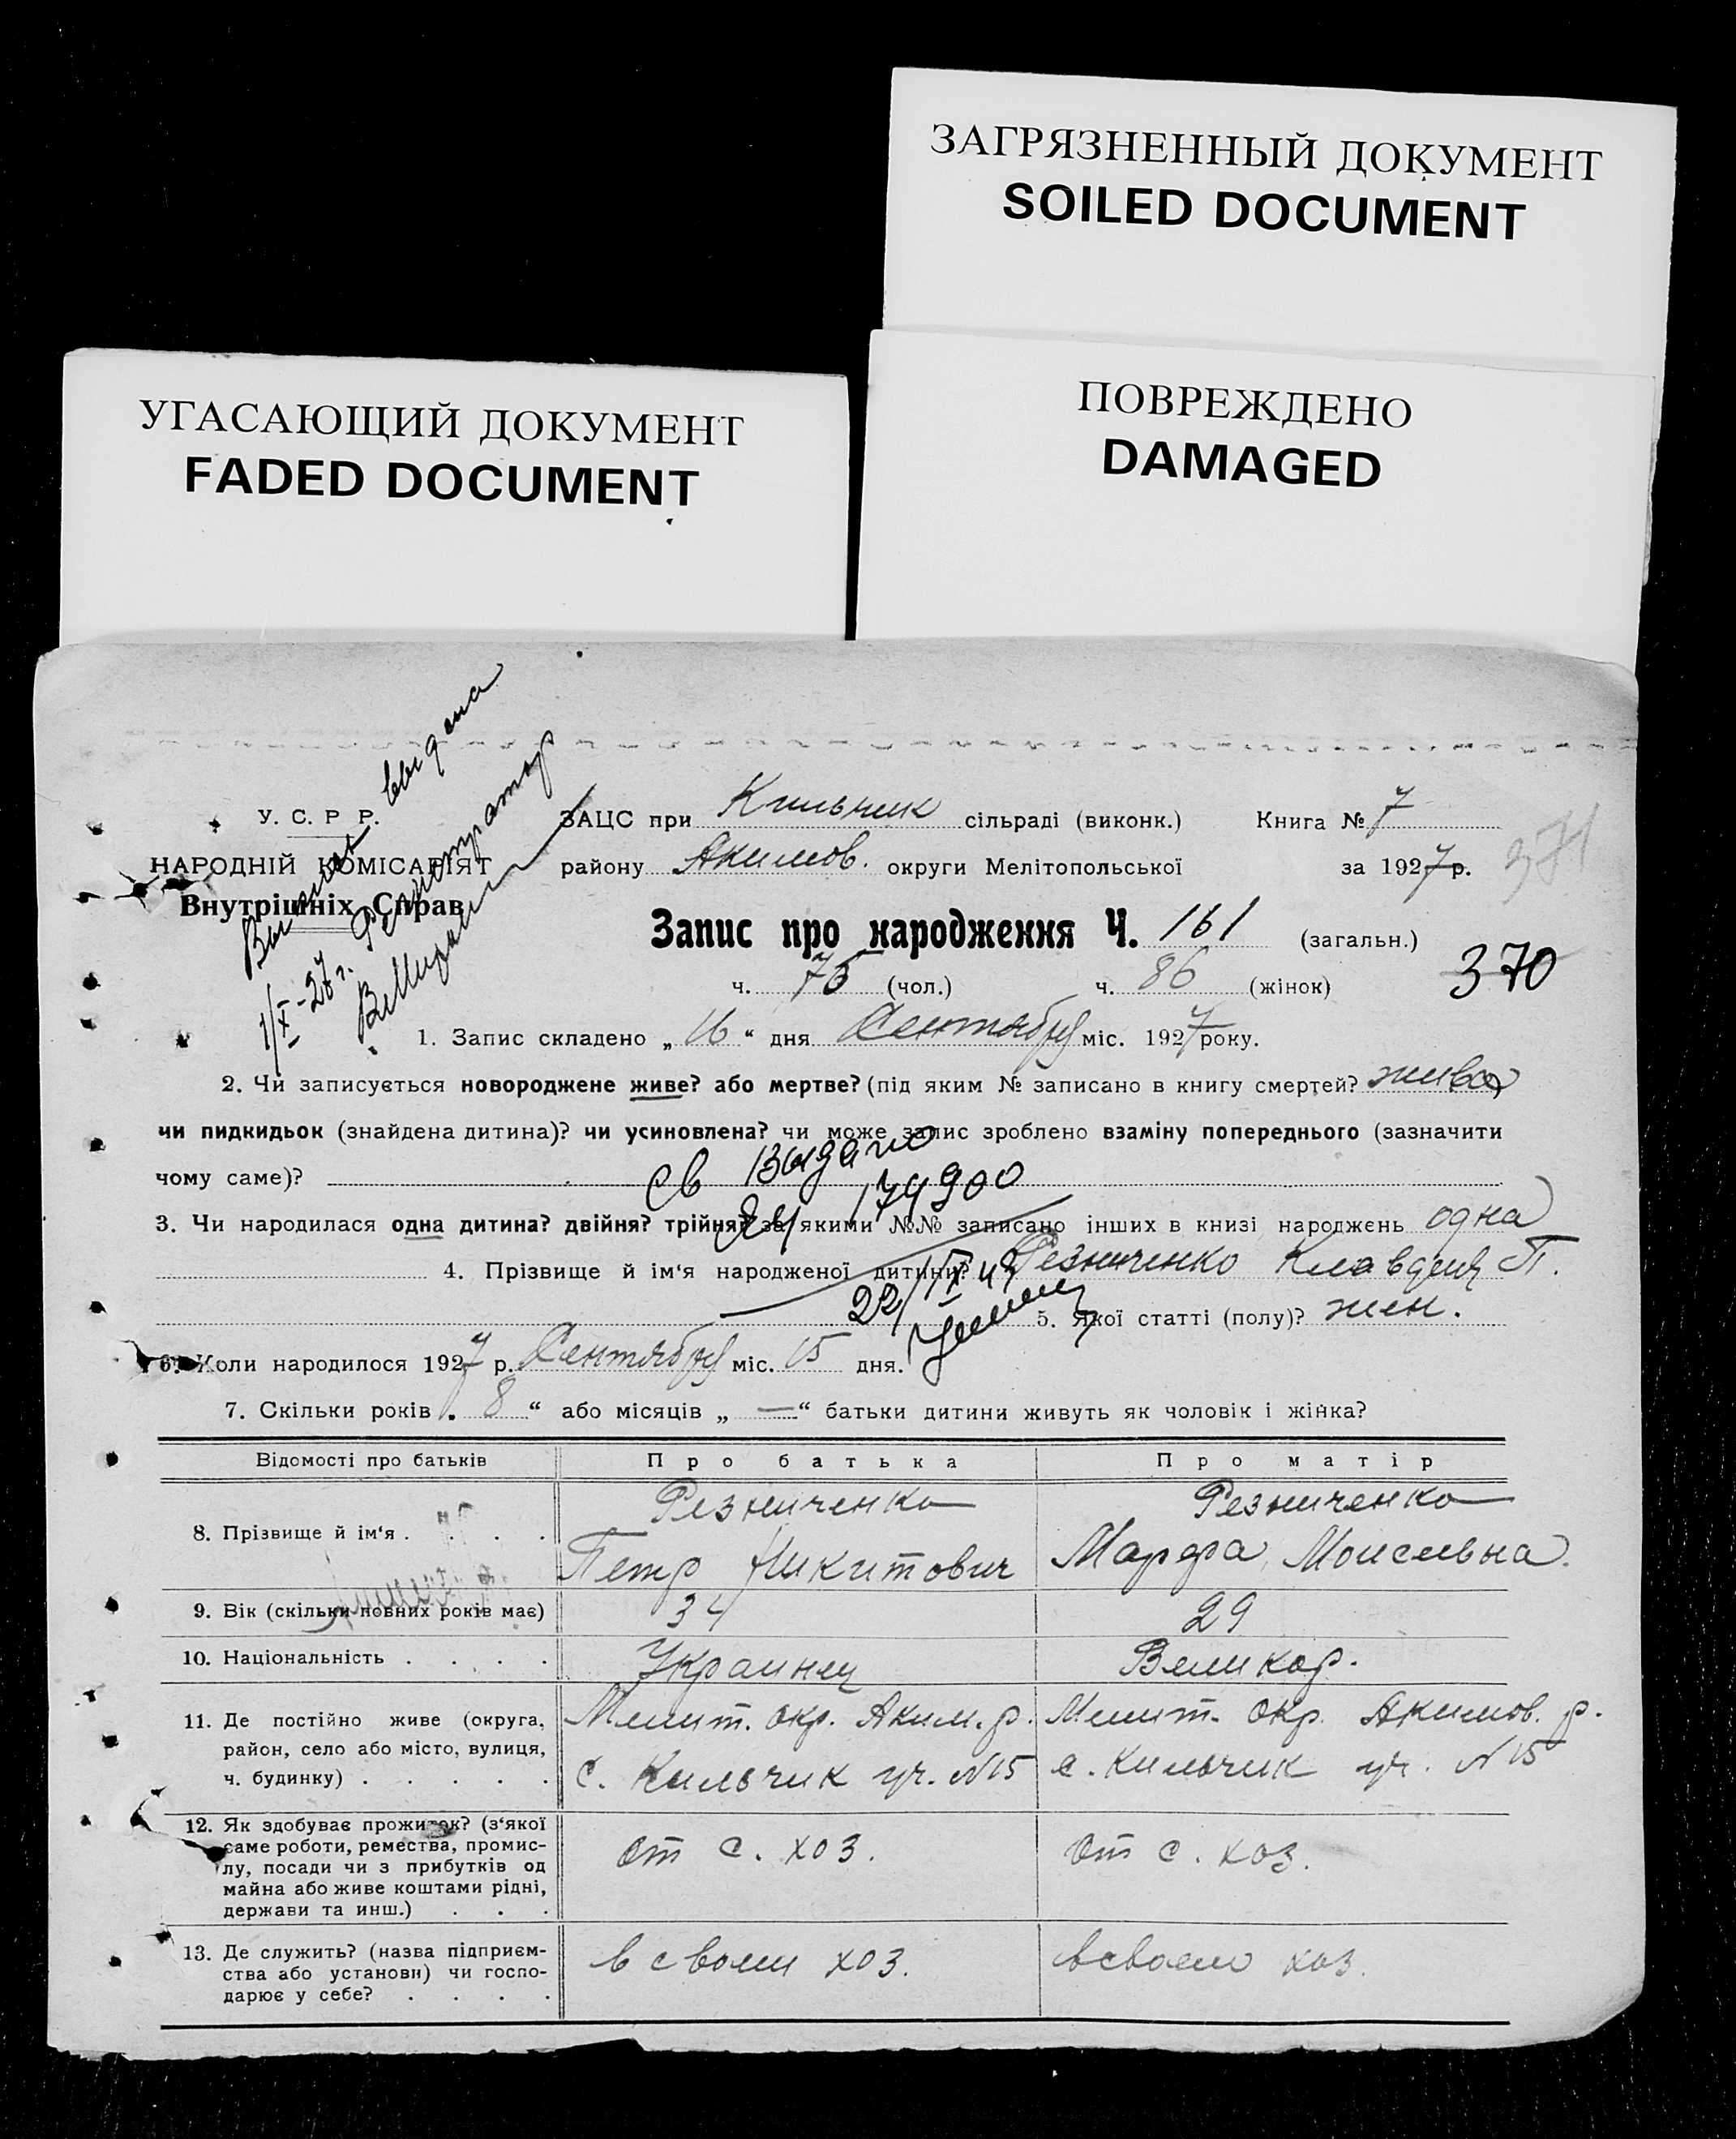 ЗАГРЯЗНЕННЫЙ ДОКУМЕНТ
SOILED DOCUMENT
УГАСАЮЩИЙ ДОКУМЕНТ
FADED DOCUMENT
ПОВРЕЖДЕНО
DAMAGED
Выпись выдана
1/X-27 г. Регистратор
У. С. Р Р.
НАРОДНІЙ КОМІСАРІЯТ
Внутрішніх Справ
ЗАЦС при Кильчик сільраді (виконк.) Книга № 7
району Акимов. округи Мелітопольської за 1927 р.
371
Запис про народження Ч. 161 (загальн.)
370
ч. 75 (чол.) ч. 86 (жінок)
1. Запис складено „ 16 “ дня Сентября міс. 1927 року.
2. Чи записується новороджене живе? або мертве? (під яким № записано в книгу смертей? живо
чи пидкидьок (знайдена дитина)? чи усиновлена? чи може запис зроблено взаміну попереднього (зазначити
чому саме)?
св выдано
174900
3. Чи народилася одна дитина? двійня? трійня? за якими №№ записано інших в книзі народжень одна
4. Прізвище й ім‘я народженої дитини? Резниченко Клавдия П.
22/IX
5. Якої статті (полу)? жен.
6. Коли народилося 1927 р. Сентября міс. 15 дня.
7. Скільки років „ 8 “ або місяців „ — “ батьки дитини живуть як чоловік і жінка?
Відомості про батьків Про батька Про матір
8. Прізвище й ім‘я . . . . Резниченко Петр Никитович Резниченко Марфа Моисеевна.
9. Вік (скільки повних років має) 34 29
10. Національність . . . . Украинец Великор.
11. Де постійно живе (округа, Мелит. окр. Аким. р. Мелит. окр. Акимов. р.
район, село або місто, вулиця, с. Кильчик уч. N15 с. Кильчик уч. N15
ч. будинку) . . . . .
12. Як здобуває прожиток? (з‘якої
саме роботи, ремества, промис- от с. хоз. от с. хоз.
лу, посади чи з прибутків од
майна або живе коштами рідні,
держави та инш.) . . .
13. Де служить? (назва підприєм- в своем хоз. в своем хоз.
ства або установи) чи госпо-
дарює у себе? . . . .